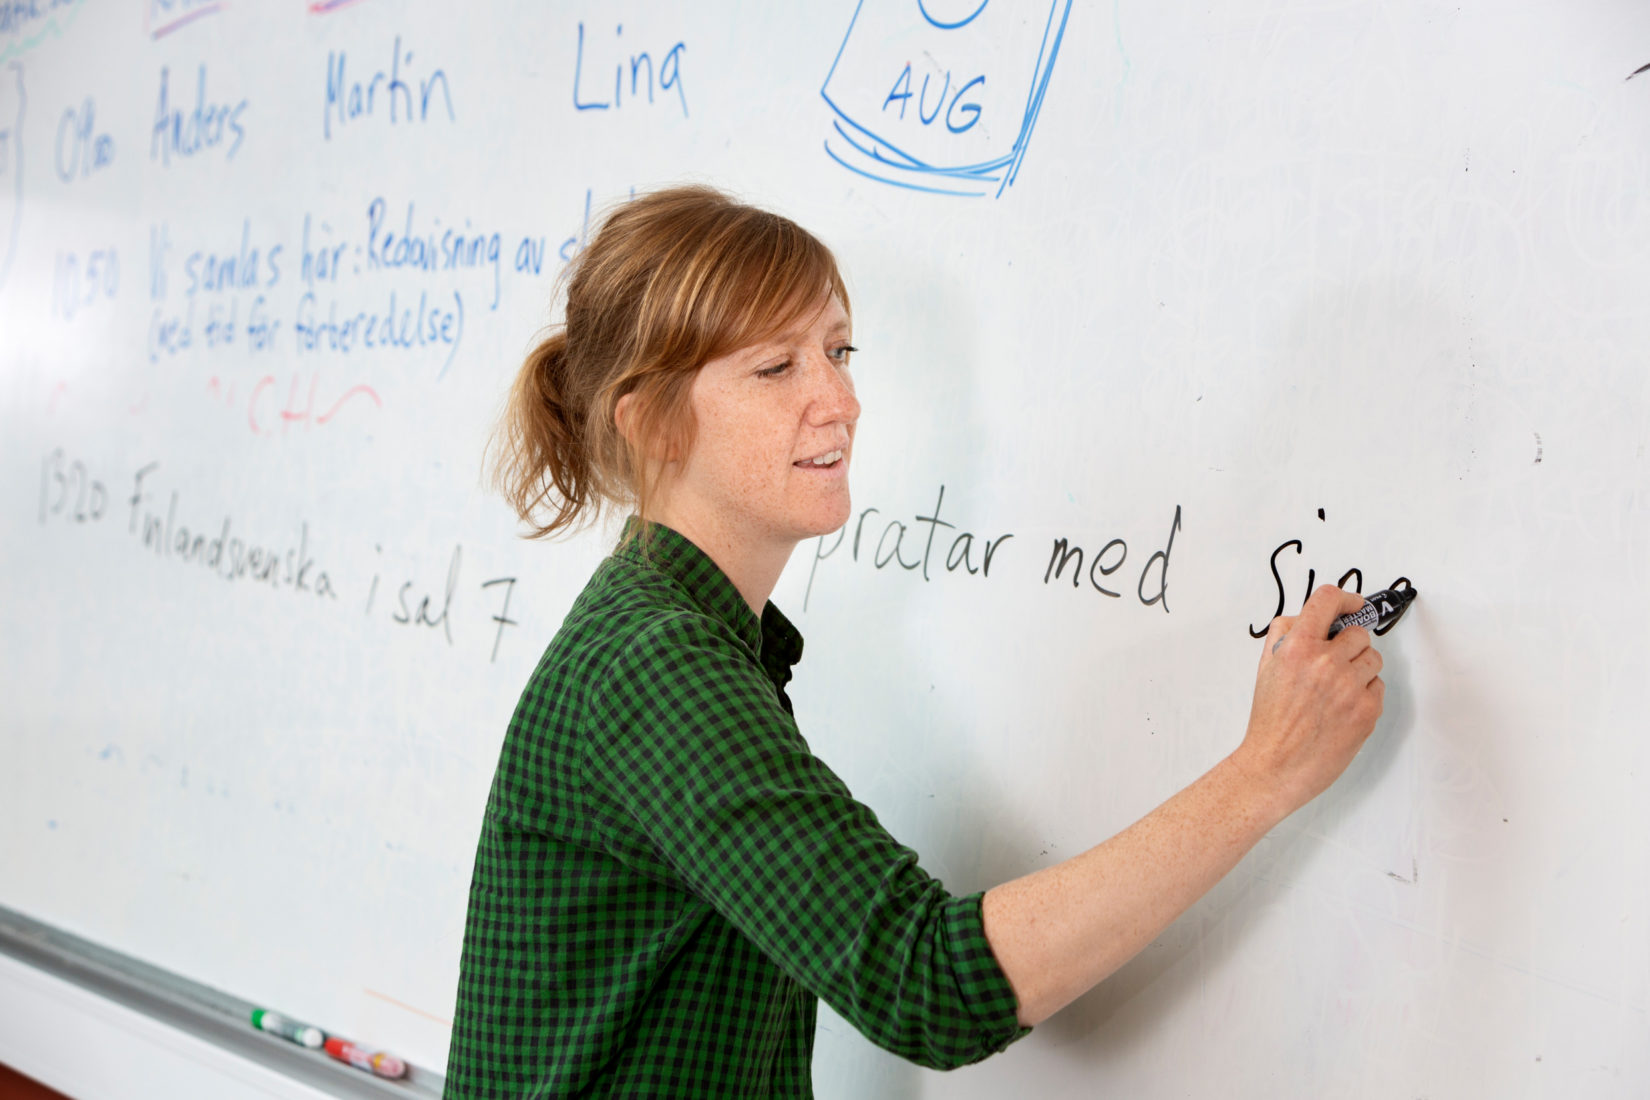 09.00 Anders Martin Lina
AUG
10.50 Vi samlas här: Redovisning av
(med tid för förberedelse)
1320 Finlandsvenska i sal 7
pratar med sina
BOARD
MASTER